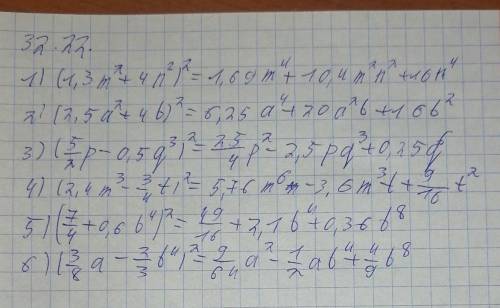 32.22.
1) (1,3m²+4n²)²=1,69m⁴+10,4m²n²+16n⁴
2) (2,5a²+4b)²=6,25a⁴+20a²b+16b²
3) (5/2p-0,5q³)²=25/4p²-2,5pq³+0,25q⁶
4) (2,4m³-3/4t)²=5,76m⁶-3,6m³t+9/16t²
5) (7/4+0,6b⁴)²=49/16+2,1b⁴+0,36b⁸
6) (3/8a-2/3b⁴)²=9/64a²-1/2ab⁴+4/9b⁸